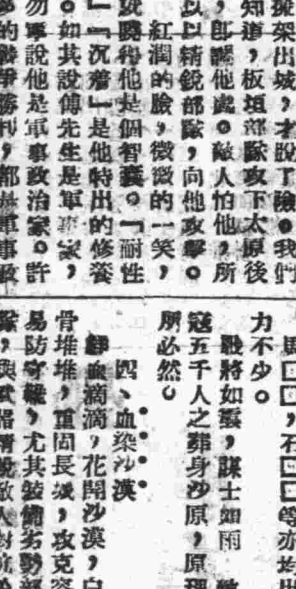 架出城，才脫了險。我們
知道，板垣部隊攻下太原後
，卽調他處。敵人怕他，所
以以精銳部隊，向他攻擊。
紅潤的臉，微微的一笑，
就曉得他是個智囊。「耐性
」「沉着」是他特出的修養
。如其說傅先生是軍事家，
勿寧說他是軍事政治家。許
多的戰爭勝利，都是軍事政
馬□□，石□□□等亦均出
力不少。
戰將如雲，謀士如雨
寇五千人之葬身沙原，原理
所必然。
四、血染沙漠
鮮血滴滴，花開沙漠，白
骨堆堆，重固長城，攻克容
易防守難，尤其裝備劣勢部
隊，與武器精銳敵人對